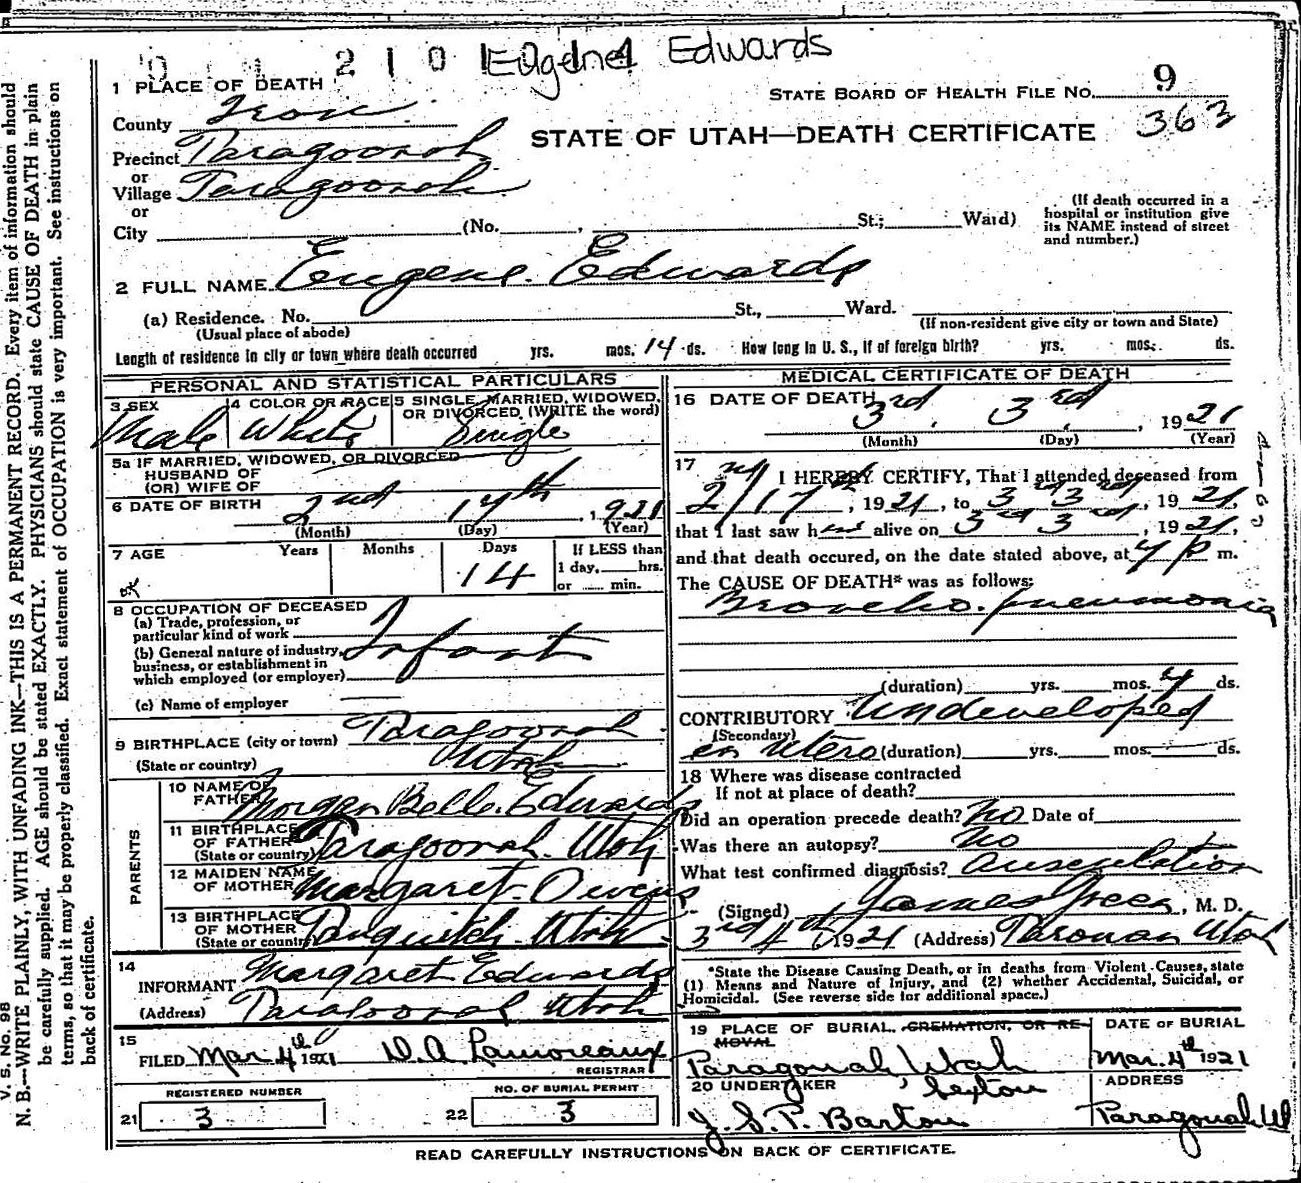 2 1 0 Eugene Edwards
1 PLACE OF DEATH
STATE BOARD OF HEALTH FILE NO. 9
County Iron
STATE OF UTAH—DEATH CERTIFICATE 363
Precinct Paragoonah
or
Village Paragoonah
or
City (No. , St.; Ward)
(If death occurred in a
hospital or institution give
its NAME instead of street
and number.)
2 FULL NAME Eugene Edwards
(a) Residence. No. St., Ward.
(Usual place of abode)
(If non-resident give city or town and State)
Length of residence in city or town where death occurred yrs. mos. 14 ds. How long in U. S., if of foreign birth? yrs. mos. ds.
PERSONAL AND STATISTICAL PARTICULARS
3 SEX
Male
4 COLOR OR RACE
White
5 SINGLE, MARRIED, WIDOWED,
OR DIVORCED (WRITE the word)
Single
5a IF MARRIED, WIDOWED, OR DIVORCED
HUSBAND OF
(OR) WIFE OF
6 DATE OF BIRTH 2nd 17th, 1921
(Month) (Day) (Year)
7 AGE Years Months Days If LESS than
14 1 day, hrs.
or min.
8 OCCUPATION OF DECEASED
(a) Trade, profession, or
particular kind of work
(b) General nature of industry,
business, or establishment in
which employed (or employer)
Infant
(c) Name of employer
9 BIRTHPLACE (city or town) Paragoonah
(State or country) Utah
PARENTS
10 NAME OF
FATHER Morgan Belle Edwards
11 BIRTHPLACE
OF FATHER
(State or country) Paragoonah Utah
12 MAIDEN NAME
OF MOTHER Margaret Owens
13 BIRTHPLACE
OF MOTHER
(State or country) Panguitch Utah
14
INFORMANT Margaret Edwards
(Address) Paragoonah Utah
15
FILED Mar 4th 1921 W A Lamoreaux
REGISTRAR
REGISTERED NUMBER
21 3
NO. OF BURIAL PERMIT
22 3
MEDICAL CERTIFICATE OF DEATH
16 DATE OF DEATH
3rd, 3rd, 1921
(Month) (Day) (Year)
17 I HEREBY CERTIFY, That I attended deceased from
2nd/17th, 1921, to 3rd 3rd, 1921,
that I last saw him alive on 3rd 3rd, 1921,
and that death occured, on the date stated above, at 4 p m.
The CAUSE OF DEATH* was as follows:
Broncho. pneumonia
(duration) yrs. mos. 4 ds.
CONTRIBUTORY Undeveloped
(Secondary)
en utero (duration) yrs. mos. ds.
18 Where was disease contracted
If not at place of death?
Did an operation precede death? No Date of
Was there an autopsy? No
What test confirmed diagnosis? Auscultation
(Signed) James Green, M. D.
3rd 4th, 1921 (Address) Parowan Utah
*State the Disease Causing Death, or in deaths from Violent Causes, state
(1) Means and Nature of Injury, and (2) whether Accidental, Suicidal, or
Homicidal. (See reverse side for additional space.)
19 PLACE OF BURIAL, CREMATION, OR RE-
MOVAL
Paragonah Utah
DATE OF BURIAL
Mar. 4th 1921
20 UNDERTAKER Sexton
J. S. P. Barton
ADDRESS
Paragonah Ut
READ CAREFULLY INSTRUCTIONS ON BACK OF CERTIFICATE.
V. S. No. 98
N. B.—WRITE PLAINLY, WITH UNFADING INK—THIS IS A PERMANENT RECORD. Every item of information should
be carefully supplied. AGE should be stated EXACTLY. PHYSICIANS should state CAUSE OF DEATH in plain
terms, so that it may be properly classified. Exact statement of OCCUPATION is very important. See instructions on
back of certificate.